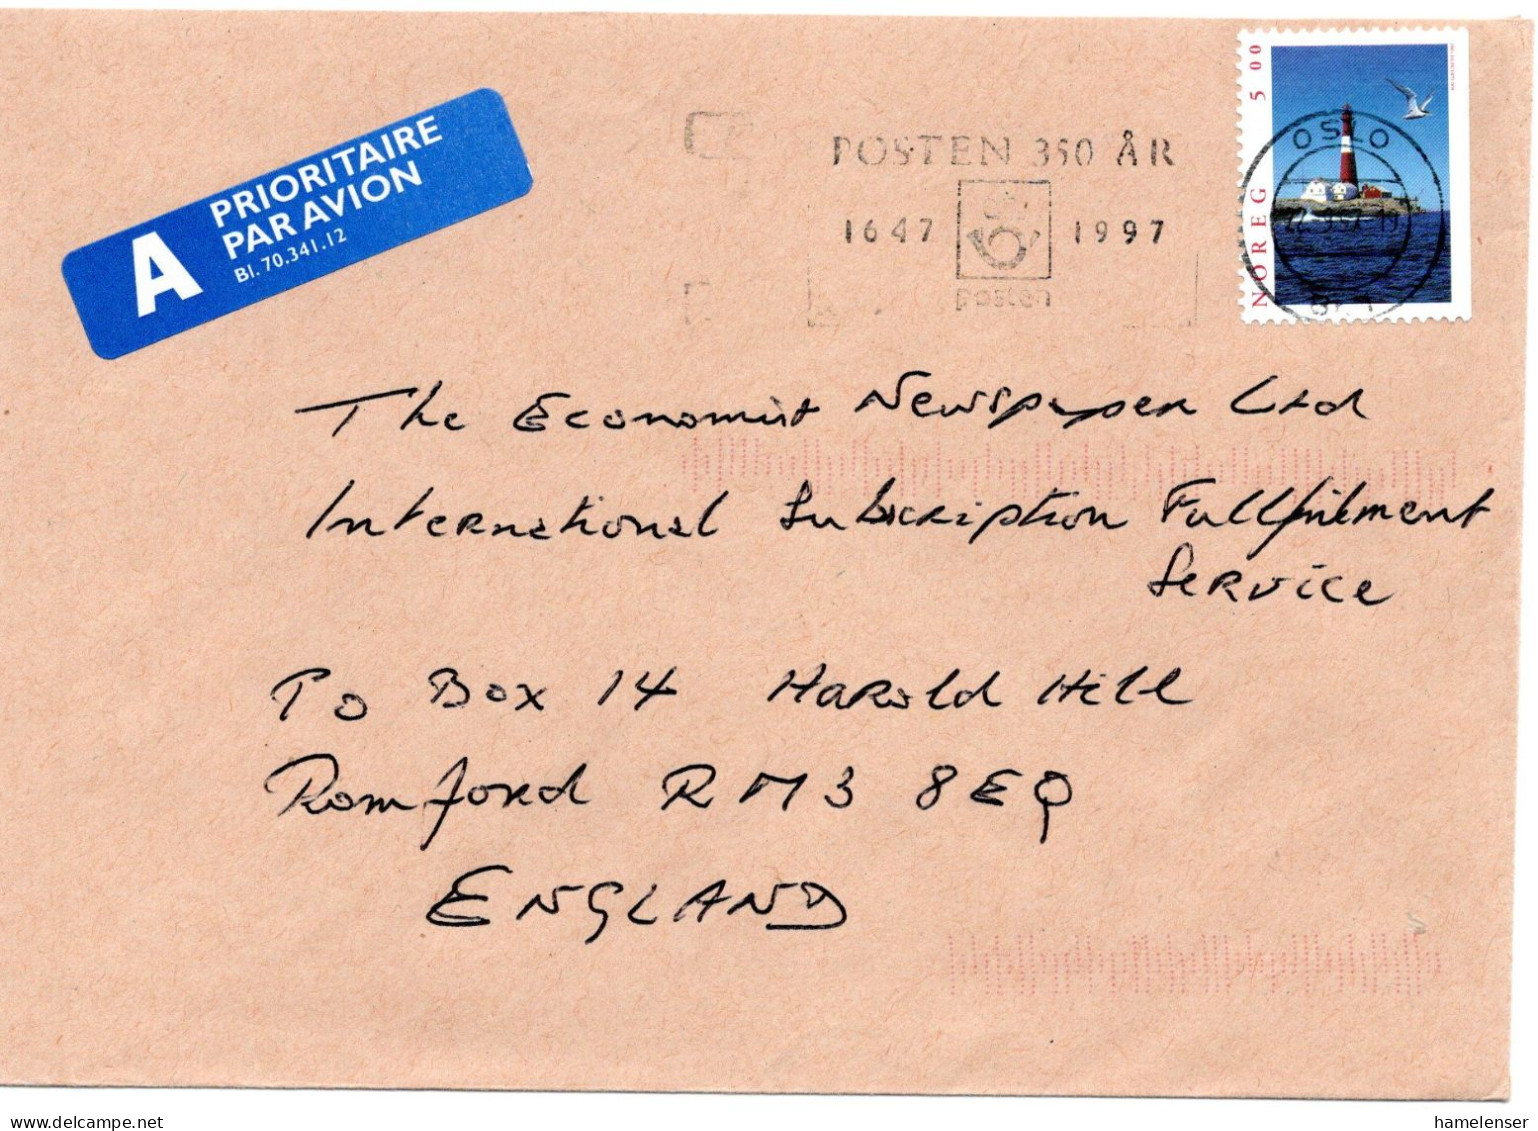 A
PRIORITAIRE
PAR AVION
Bl. 70.341.12
POSTEN 350 ÅR
1647 1997
posten
NOREG 5 00
OSLO
The Economist Newspaper Ltd
International Subscription Fullfilment
Service
Po Box 14 Harold Hill
Romford RM3 8EQ
ENGLAND
hamelenser